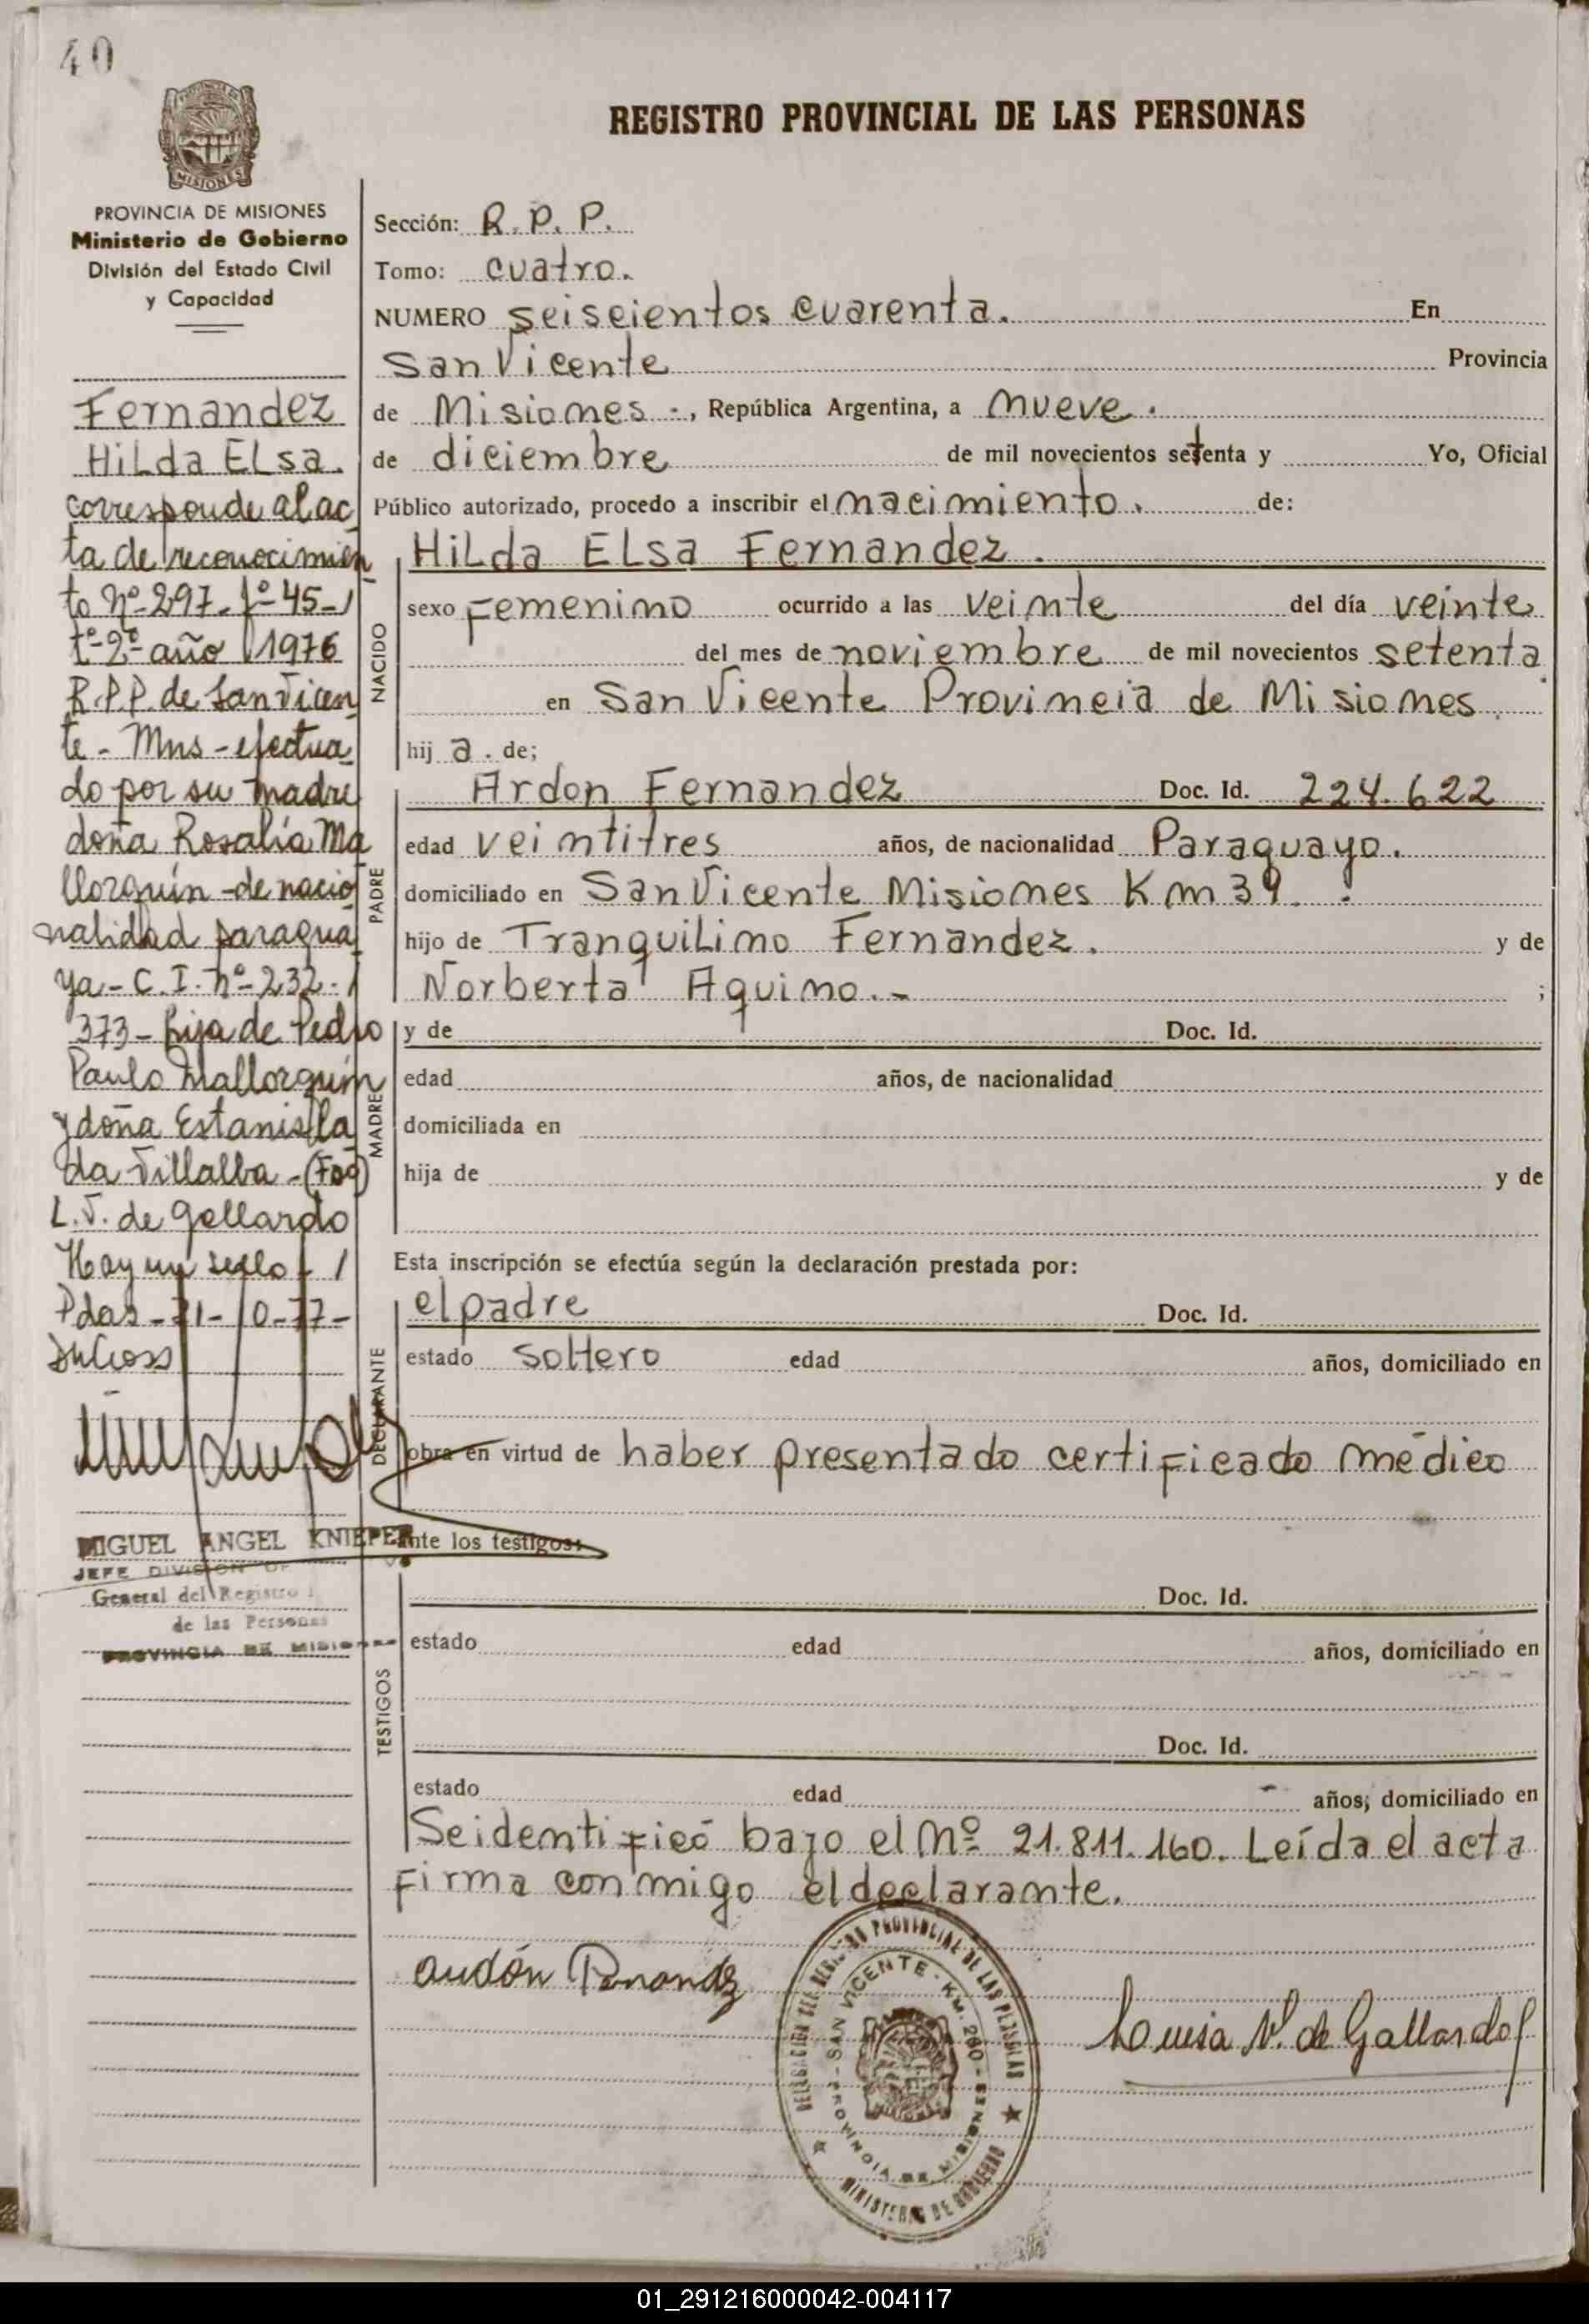 40
MISIONES
PROVINCIA DE MISIONES
Ministerio de Gobierno
División del Estado Civil
y Capacidad
Fernandez
Hilda Elsa.
corresponde al ac
ta de reconocimien
to Nº 297. fº 45-/
tº 2º año 1976
R.P.P. de San Vicen
te - Mns - efectua
do por su madre
doña Rosalía Ma
llorquín - de nacio
nalidad paragua
ya - C. I. nº 232./
373 - hija de Pedro
Paulo Mallorquín
y doña Estanisla
da Villalba - (Fdo)
L. V. de Gallardo
Hay un sello - /
Pdas - 21-10-77-
MIGUEL ANGEL KNIEPER
JEFE DIVISION
General del Registro
de las Personas
PROVINCIA DE MISIONES
REGISTRO PROVINCIAL DE LAS PERSONAS
Sección: R. P. P.
Tomo: cuatro.
NUMERO seiscientos cuarenta. En
San Vicente Provincia
de Misiones -, República Argentina, a nueve.
de diciembre de mil novecientos setenta y Yo, Oficial
Público autorizado, procedo a inscribir el nacimiento. de:
NACIDO
Hilda Elsa Fernandez.
sexo Femenino ocurrido a las veinte del día veinte
del mes de noviembre de mil novecientos setenta
en San Vicente Provincia de Misiones.
hij a. de;
PADRE
Ardon Fernandez Doc. Id. 224.622
edad veintitres años, de nacionalidad Paraguayo.
domiciliado en San Vicente Misiones Km 39.
hijo de Tranquilino Fernandez. y de
Norberta Aquino.- ;
MADRE
y de Doc. Id.
edad años, de nacionalidad
domiciliada en
hija de y de
Esta inscripción se efectúa según la declaración prestada por:
DECLARANTE
el padre Doc. Id.
estado soltero edad años, domiciliado en
obra en virtud de haber presentado certificado médico
ante los testigos:
TESTIGOS
Doc. Id.
estado edad años, domiciliado en
Doc. Id.
estado edad años, domiciliado en
Se identificó bajo el Nº 21.811.160. Leída el acta
Firma conmigo el declarante.
Audón Fernandez
Luisa V. de Gallardo
DELEGACION DEL REGISTRO PROVINCIAL DE LAS PERSONAS
SAN VICENTE - KM. 260 - PROVINCIA DE MISIONES
MINISTERIO DE GOBIERNO
01_291216000042-004117